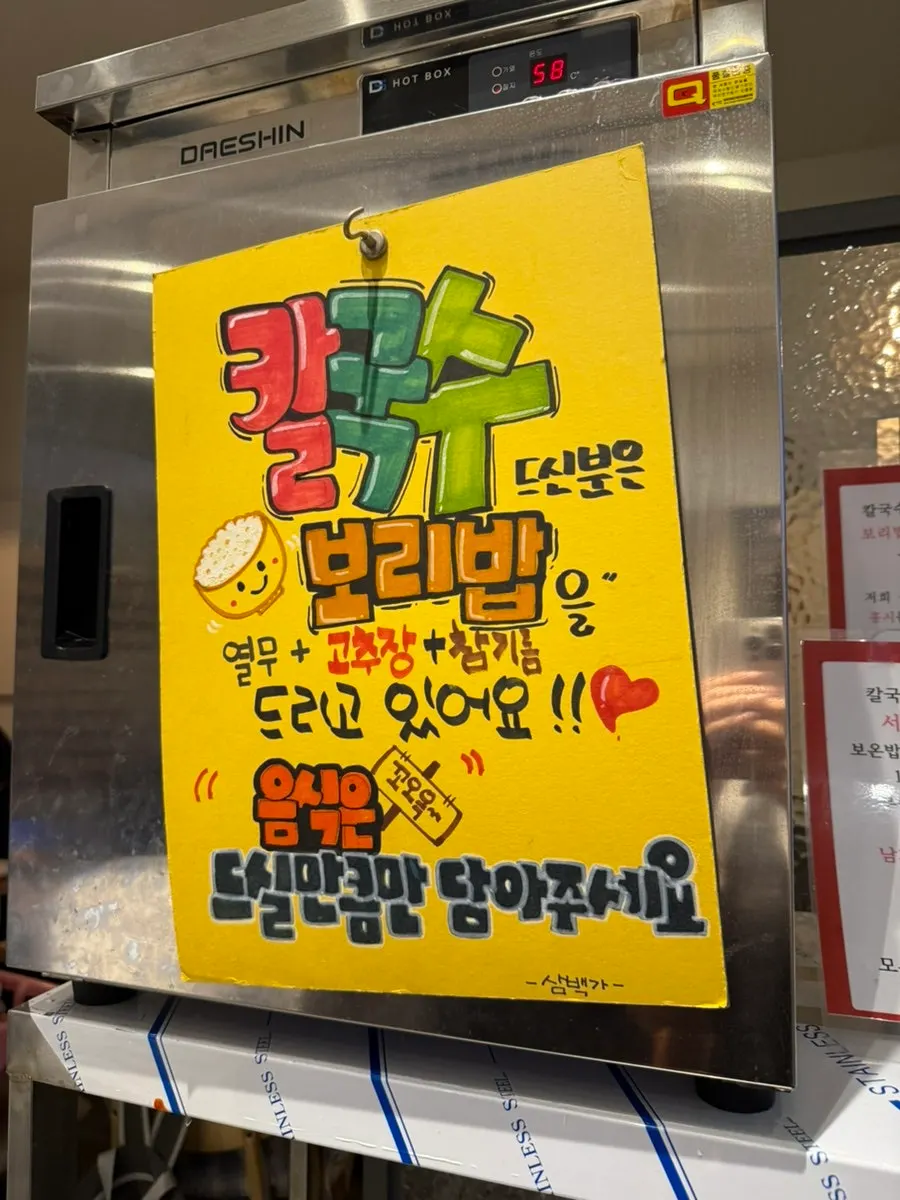 HOT BOX
HOT BOX
온도
가열
58 C°
DAESHIN
칼국수
드신분은
보리밥을
열무 + 고추장 + 참기름
드리고 있어요!!
음식은
꼬오옥~
드실만큼만 담아주세요
-삼백가-
칼국수
보리밥
저희
홍시
칼국
서
보온밥
남
모
STAINLESS STEEL
STAINLESS STEEL
STAINLESS STEEL
STAINLESS